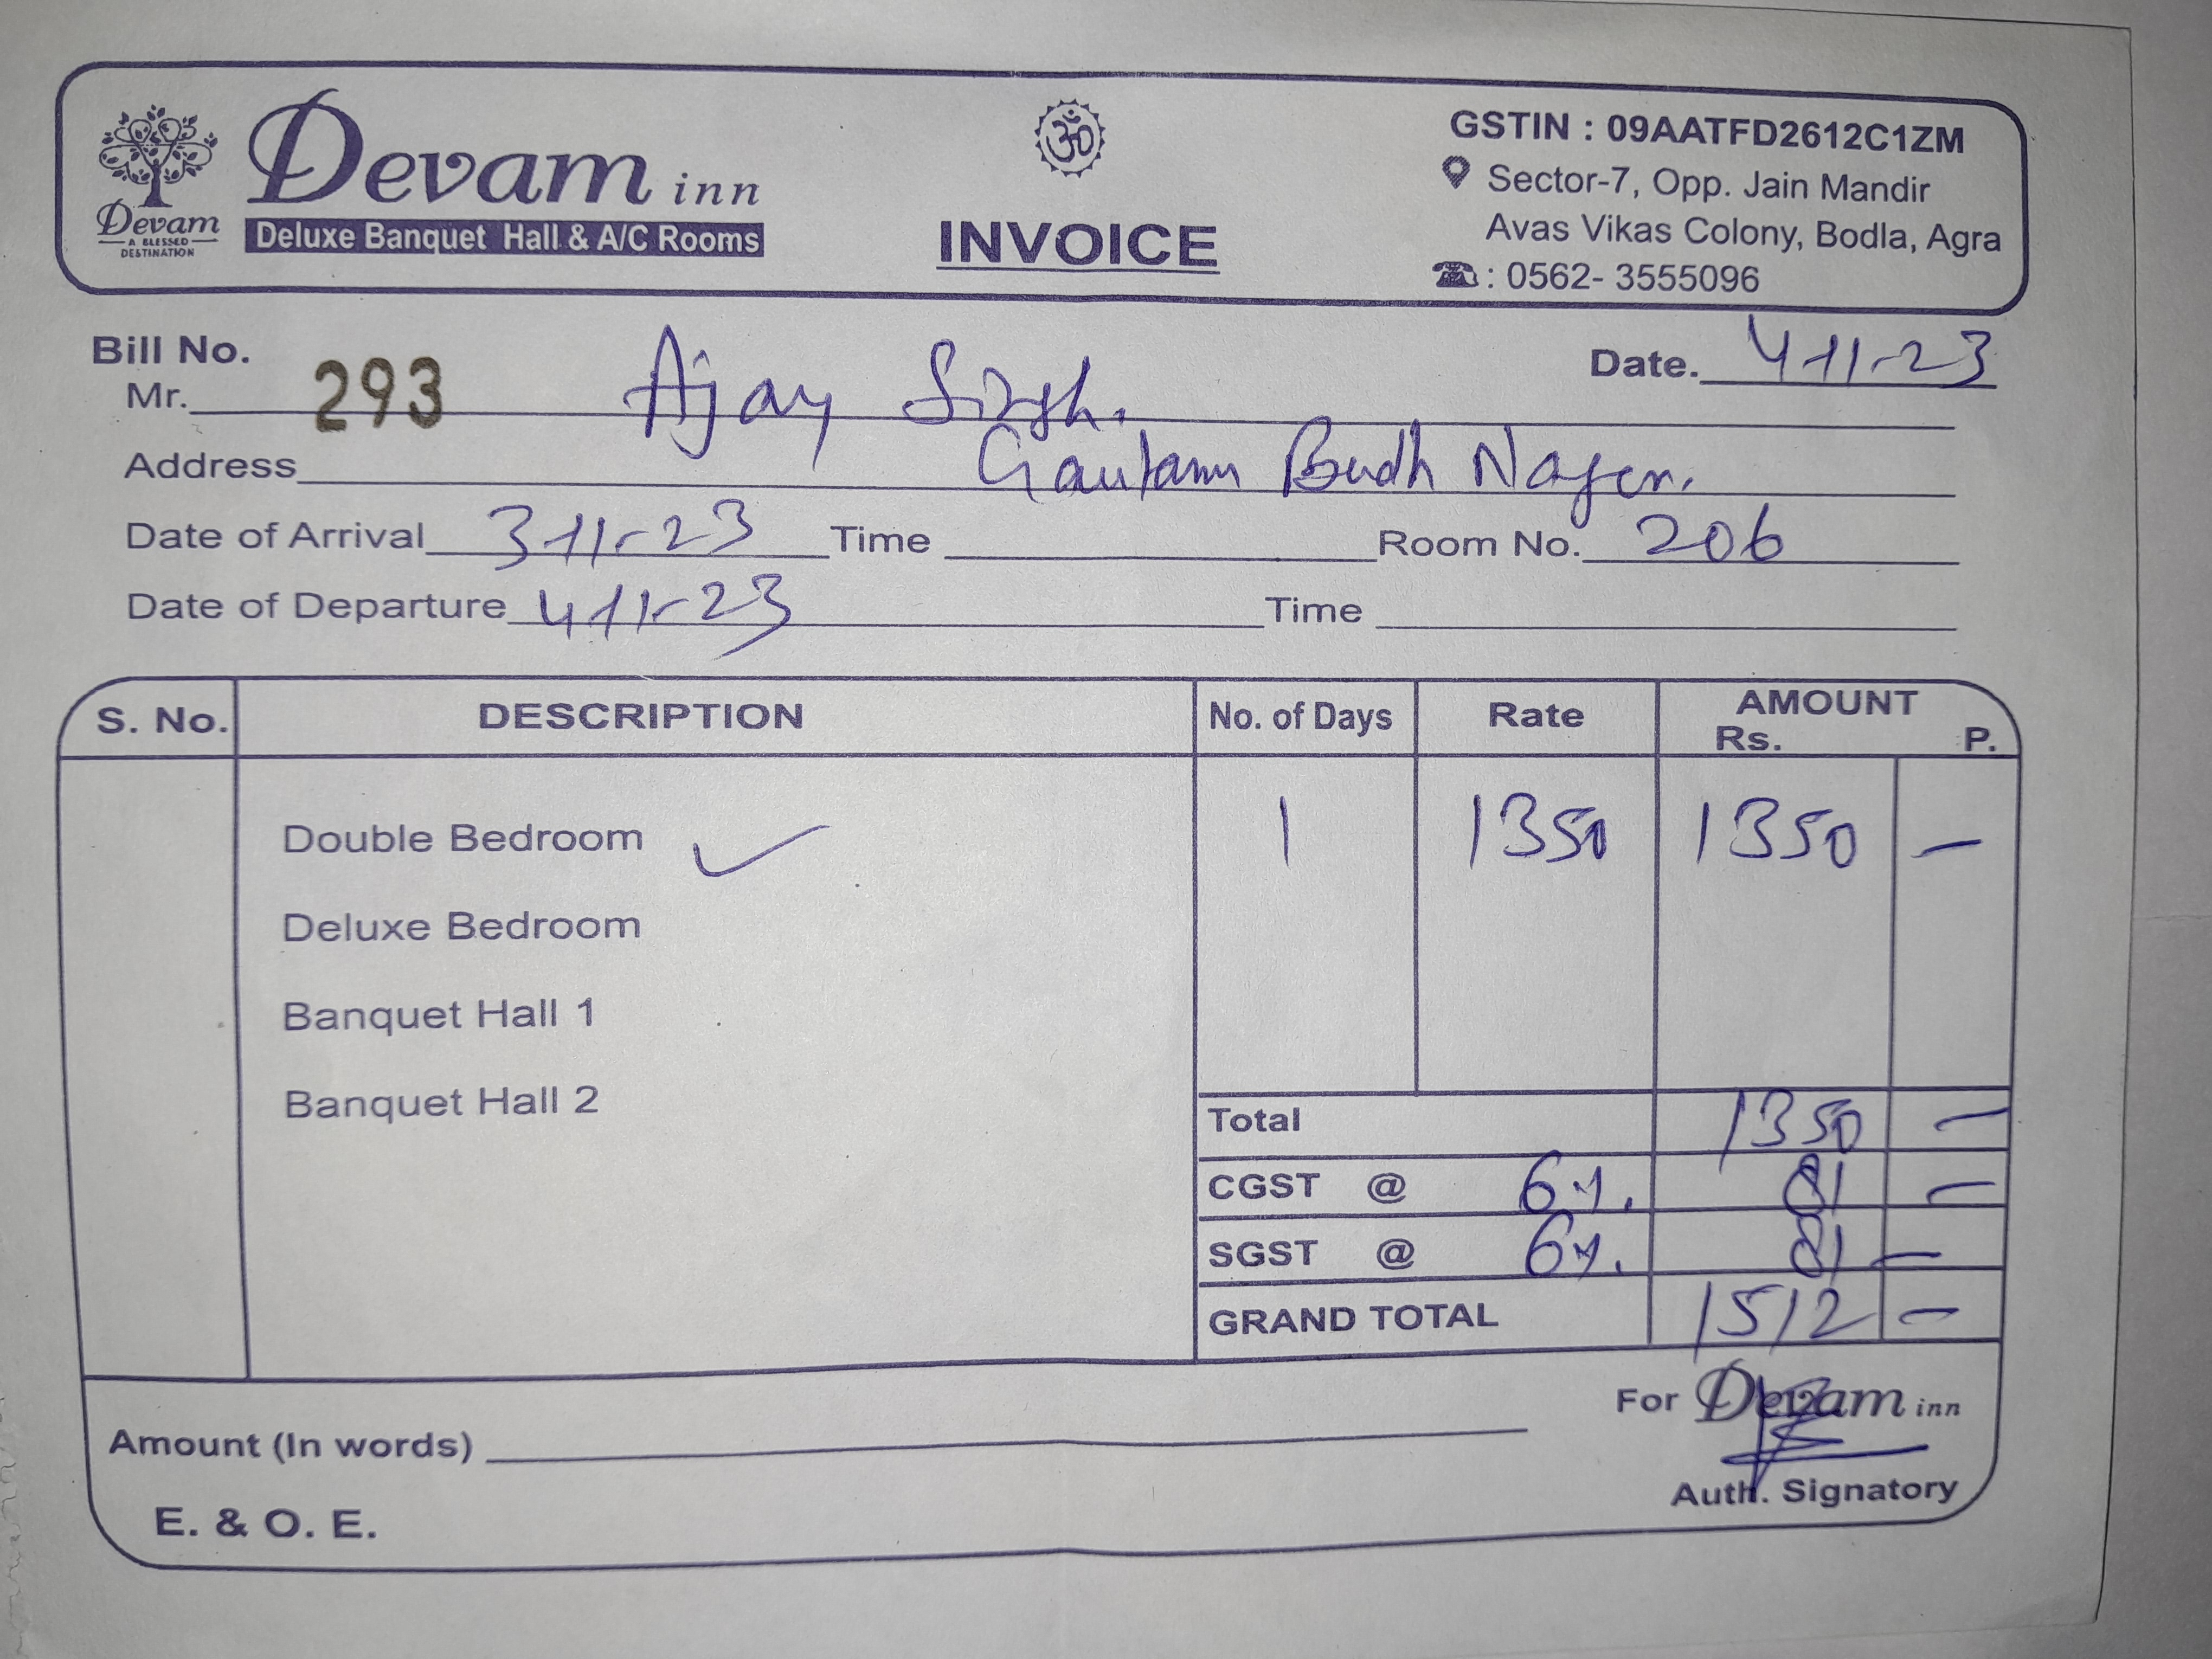 Devam inn
Devam
A BLESSED
DESTINATION
Deluxe Banquet Hall & A/C Rooms
ॐ
INVOICE
GSTIN : 09AATFD2612C1ZM
Sector-7, Opp. Jain Mandir
Avas Vikas Colony, Bodla, Agra
: 0562- 3555096
Bill No. 293
Date. 4-11-23
Mr. Ajay Singh.
Address Gautam Budh Nager.
Date of Arrival 3-11-23 Time Room No. 206
Date of Departure 4-11-23 Time
S. No. DESCRIPTION No. of Days Rate AMOUNT
Rs. P.
Double Bedroom ✓ 1 1350 1350 —
Deluxe Bedroom
Banquet Hall 1
Banquet Hall 2
Total 1350 —
CGST @ 6%. 81 —
SGST @ 6%. 81 —
GRAND TOTAL 1512 —
For Devam inn
Amount (In words)
Auth. Signatory
E. & O. E.